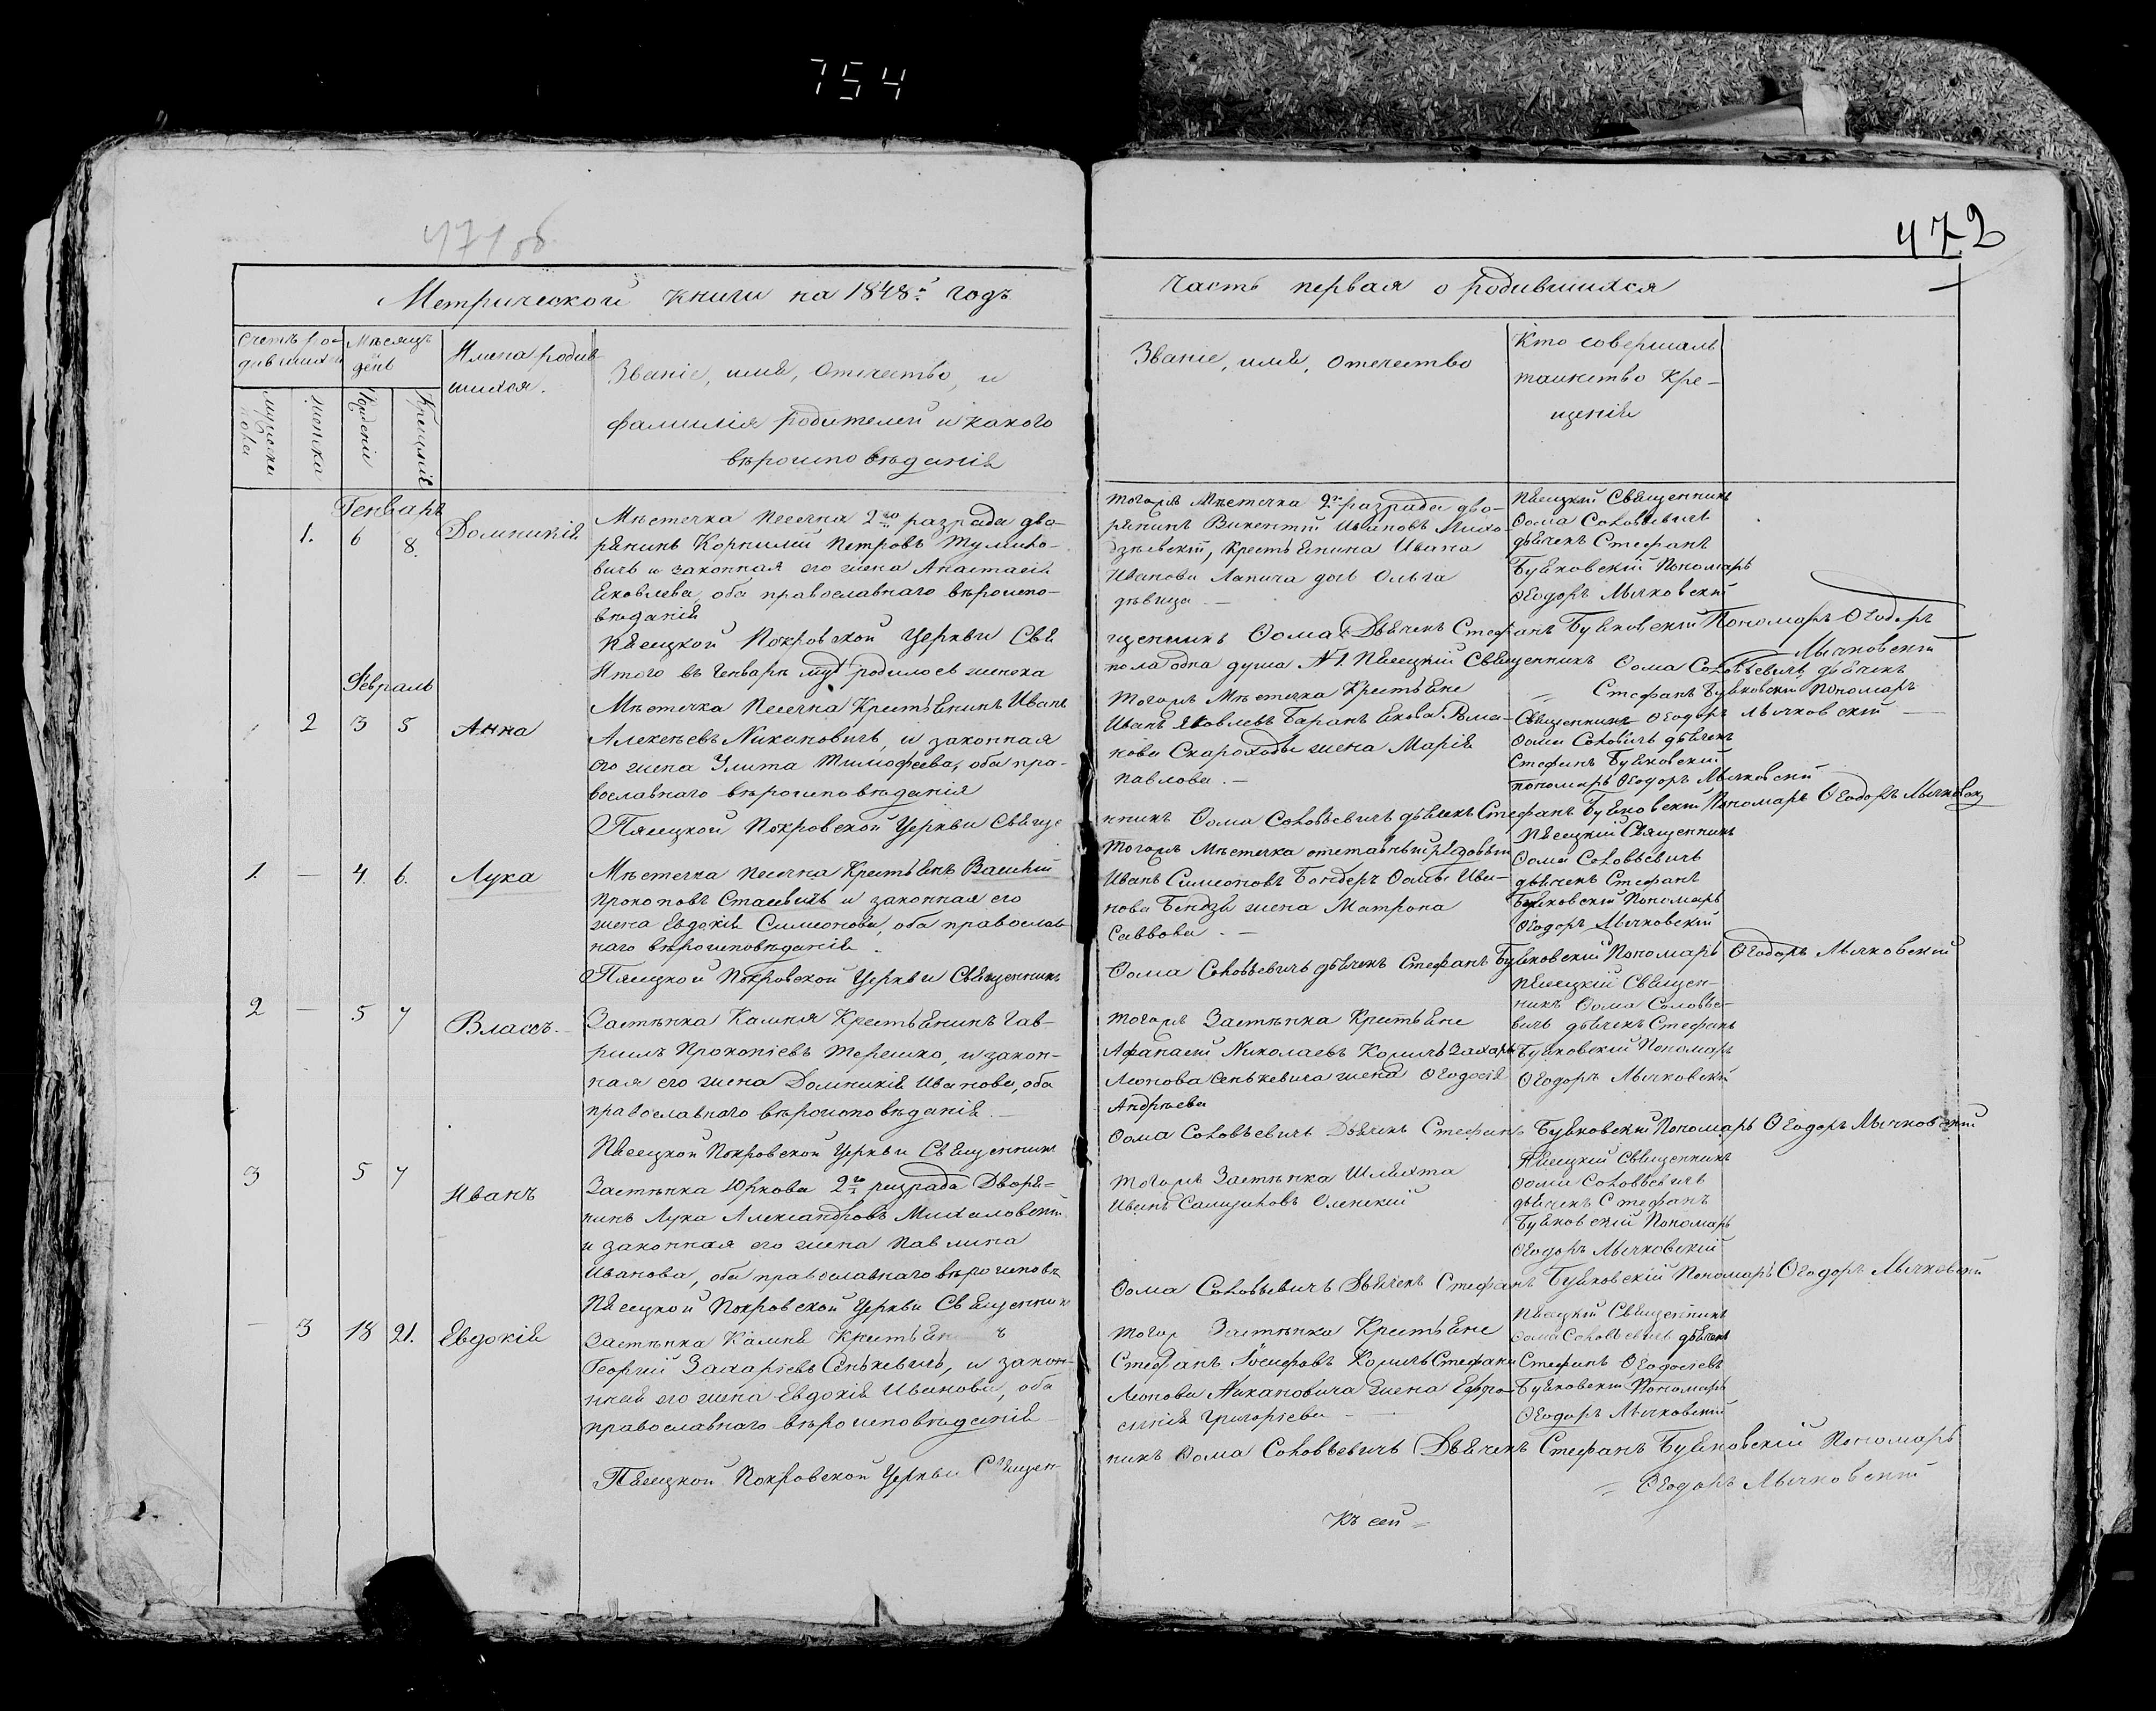 754
471об
472
Метрической книги на 1848й годъ
Часть первая о родившихся
Счетъ ро-
дившихся
Мѣсяцъ
день
Имена родив
шихся.
Званіе, имя, Отечество, и
фамилія родителей и какого
вѣроисповѣданія
Званіе, имя, Отечество
Кто совершалъ
таинство Кре-
щенія
мужеска
пола
женска
Рожденія
Крещенія
Генварь
1. 6 8. Домникія
Мѣстечка Песечна 2го разряда дво-
рянинъ Корнилій Петровъ
вичъ и законная его жена Анастасія
Яковлева, оба православнаго вѣроиспо-
вѣданія
Тогожъ Мѣстечка 2го разряда дво-
рянинъ Викентій Ивановъ
Крестьянина Ивана
Иванова Лапича дочь Ольга
дѣвица. —
Пясецкій Священникъ
Ѳома Соловьевичъ
дьячекъ Стефанъ
Буяковскій Пономарь
Ѳеодоръ Мычковскій
Пясецкой Покровской Церкви Свя
щенникъ Ѳома Дьячекъ Стефанъ Буяковскій Пономарь Ѳеодоръ
Мычковскій
Итого въ Генварѣ родилось женска
пола одна душа №1. Пясецкій Священникъ Ѳома Соловьевичъ дьячекъ
Стефанъ Буяковскій Пономарь
Ѳеодоръ Мычковскій
Февраль
2 3 5 Анна
Мѣстечка Песечна Крестьянинъ Иванъ
Алексѣевъ Никановичъ, и законная
его жена Улита Тимофеева, оба пра-
вославнаго вѣроисповѣданія
Тогожъ Мѣстечка Крестьяне
Иванъ Яковлевъ Баранъ Якова Рома-
нова Скарохода жена Марія
Павлова. —
Священникъ
Ѳома дьячекъ
Стефанъ Буяковскій
пономарь Ѳеодоръ Мычковскій
Пясецкой Покровской Церкви Свяще
нникъ Ѳома Соловьевичъ дьячекъ Стефанъ Буяковскій Пономарь Ѳеодоръ Мычковск
1. — 4. 6. Лука
Мѣстечка Песечна Крестьянъ Василій
Прокоповъ Стасевичъ и законная его
жена Евдокія Симеонова, оба православ
наго вѣроисповѣданія.
Тогожъ Мѣстечка отставный рядовый
Иванъ Симеоновъ Бондеръ Ѳомы Ива-
нова жена Матрона
Саввова. —
Пясецкій Священникъ
Ѳома Соловьевичъ
дьячекъ Стефанъ
Буяковскій Пономарь
Ѳеодоръ Мычковскій
Пясецкой Покровской Церкви Священникъ
Ѳома Соловьевичъ дьячекъ Стефанъ Буяковскій Пономарь Ѳеодоръ Мычковскій
2 — 5 7 Власъ. —
Застѣнка Камня Крестьянинъ Гав-
риилъ Прокопіевъ Терешко, и закон-
ная его жена Домникія Иванова, оба
православнаго вѣроисповѣданія. —
Тогожъ Застѣнка Крестьяне
Афанасій Николаевъ Захарія
Леонова Сенькевича жена Ѳеодосія
Андрѣева
Пясецкій Священ-
никъ Ѳома Соловье-
вичъ дьячекъ Стефанъ
Буяковскій Пономарь
Ѳеодоръ Мычковскій
Пясецкой Покровской Церкви Священникъ
Ѳома Соловьевичъ Дьячекъ Стефанъ Буяковскій Пономарь Ѳеодоръ Мычковскій
3 5 7 Иванъ
Застѣнка Юркова 2го разряда Дворя-
нинъ Лука Александровъ Михаловскій
и законная его жена Павлина
Иванова, оба православнаго вѣроисповѣ
Тогожъ Застѣнка Шляхта
Иванъ Оленскій
Пясецкій Священникъ
Ѳома Соловьевичъ
дьячекъ Стефанъ
Буяковскій Пономарь
Ѳеодоръ Мычковскій
Пясецкой Покровской Церкви Священникъ
Ѳома Соловьевичъ Дьячекъ Стефанъ Буяковскій Пономарь Ѳеодоръ Мычковскій
— 3 18 21. Евдокія
Застѣнка Камня Крестьян ъ
Георгій Захаріевъ Сенькевичъ, и закон-
ная его жена Евдокія Иванова, оба
православнаго вѣроисповѣданія
Тогож Застѣнка Крестьяне
Стефанъ Іосифовъ Стефана
Леонова Никановича жена Ефро-
синія Григоріева
Пясецкій Священникъ
Ѳома Соловьевичъ дьячекъ
Стефанъ Ѳеодосіевъ
Буяковскій Пономарь
Ѳеодоръ Мычковскій
Пясецкой Покровской Церкви Священ
никъ Ѳома Соловьевичъ Дьячекъ Стефанъ Буяковскій Пономарь
Ѳеодоръ Мычковскій
Къ сей